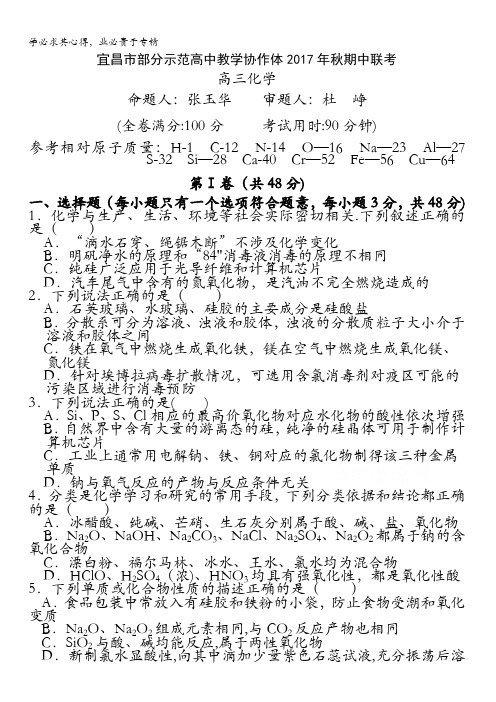 学必求其心得，业必贵于专精
宜昌市部分示范高中教学协作体2017年秋期中联考
高三化学
命题人：张玉华　　审题人：杜　峥
(全卷满分:100分　　考试用时:90分钟)
参考相对原子质量：H-1　C-12　N-14　O—16　Na—23　Al—27
S-32　Si—28　Ca-40　Cr—52　Fe—56　Cu—64
第Ⅰ卷（共48分)
一、选择题（每小题只有一个选项符合题意，每小题3分，共48分)
1．化学与生产、生活、环境等社会实际密切相关.下列叙述正确的
是（　　）
A．“滴水石穿、绳锯木断”不涉及化学变化
B．明矾净水的原理和“84"消毒液消毒的原理不相同
C．纯硅广泛应用于光导纤维和计算机芯片
D．汽车尾气中含有的氮氧化物，是汽油不完全燃烧造成的
2．下列说法正确的是（　　）
A．石英玻璃、水玻璃、硅胶的主要成分是硅酸盐
B．分散系可分为溶液、浊液和胶体，浊液的分散质粒子大小介于
溶液和胶体之间
C．铁在氧气中燃烧生成氧化铁，镁在空气中燃烧生成氧化镁、
氮化镁
D．针对埃博拉病毒扩散情况，可选用含氯消毒剂对疫区可能的
污染区域进行消毒预防
3．下列说法正确的是(　　)
A．Si、P、S、Cl相应的最高价氧化物对应水化物的酸性依次增强
B．自然界中含有大量的游离态的硅，纯净的硅晶体可用于制作计
算机芯片
C．工业上通常用电解钠、铁、铜对应的氯化物制得该三种金属
单质
D．钠与氧气反应的产物与反应条件无关
4．分类是化学学习和研究的常用手段，下列分类依据和结论都正确
的是（　　）
A．冰醋酸、纯碱、芒硝、生石灰分别属于酸、碱、盐、氧化物
B．Na₂O、NaOH、Na₂CO₃、NaCl、Na₂SO₄、Na₂O₂都属于钠的含
氧化合物
C．漂白粉、福尔马林、冰水、王水、氯水均为混合物
D．HClO、H₂SO₄（浓)、HNO₃均具有强氧化性，都是氧化性酸
5．下列单质或化合物性质的描述正确的是（　　）
A．食品包装中常放入有硅胶和铁粉的小袋，防止食物受潮和氧化
变质
B．Na₂O、Na₂O₂组成元素相同,与CO₂反应产物也相同
C．SiO₂与酸、碱均能反应,属于两性氧化物
D．新制氯水显酸性,向其中滴加少量紫色石蕊试液,充分振荡后溶